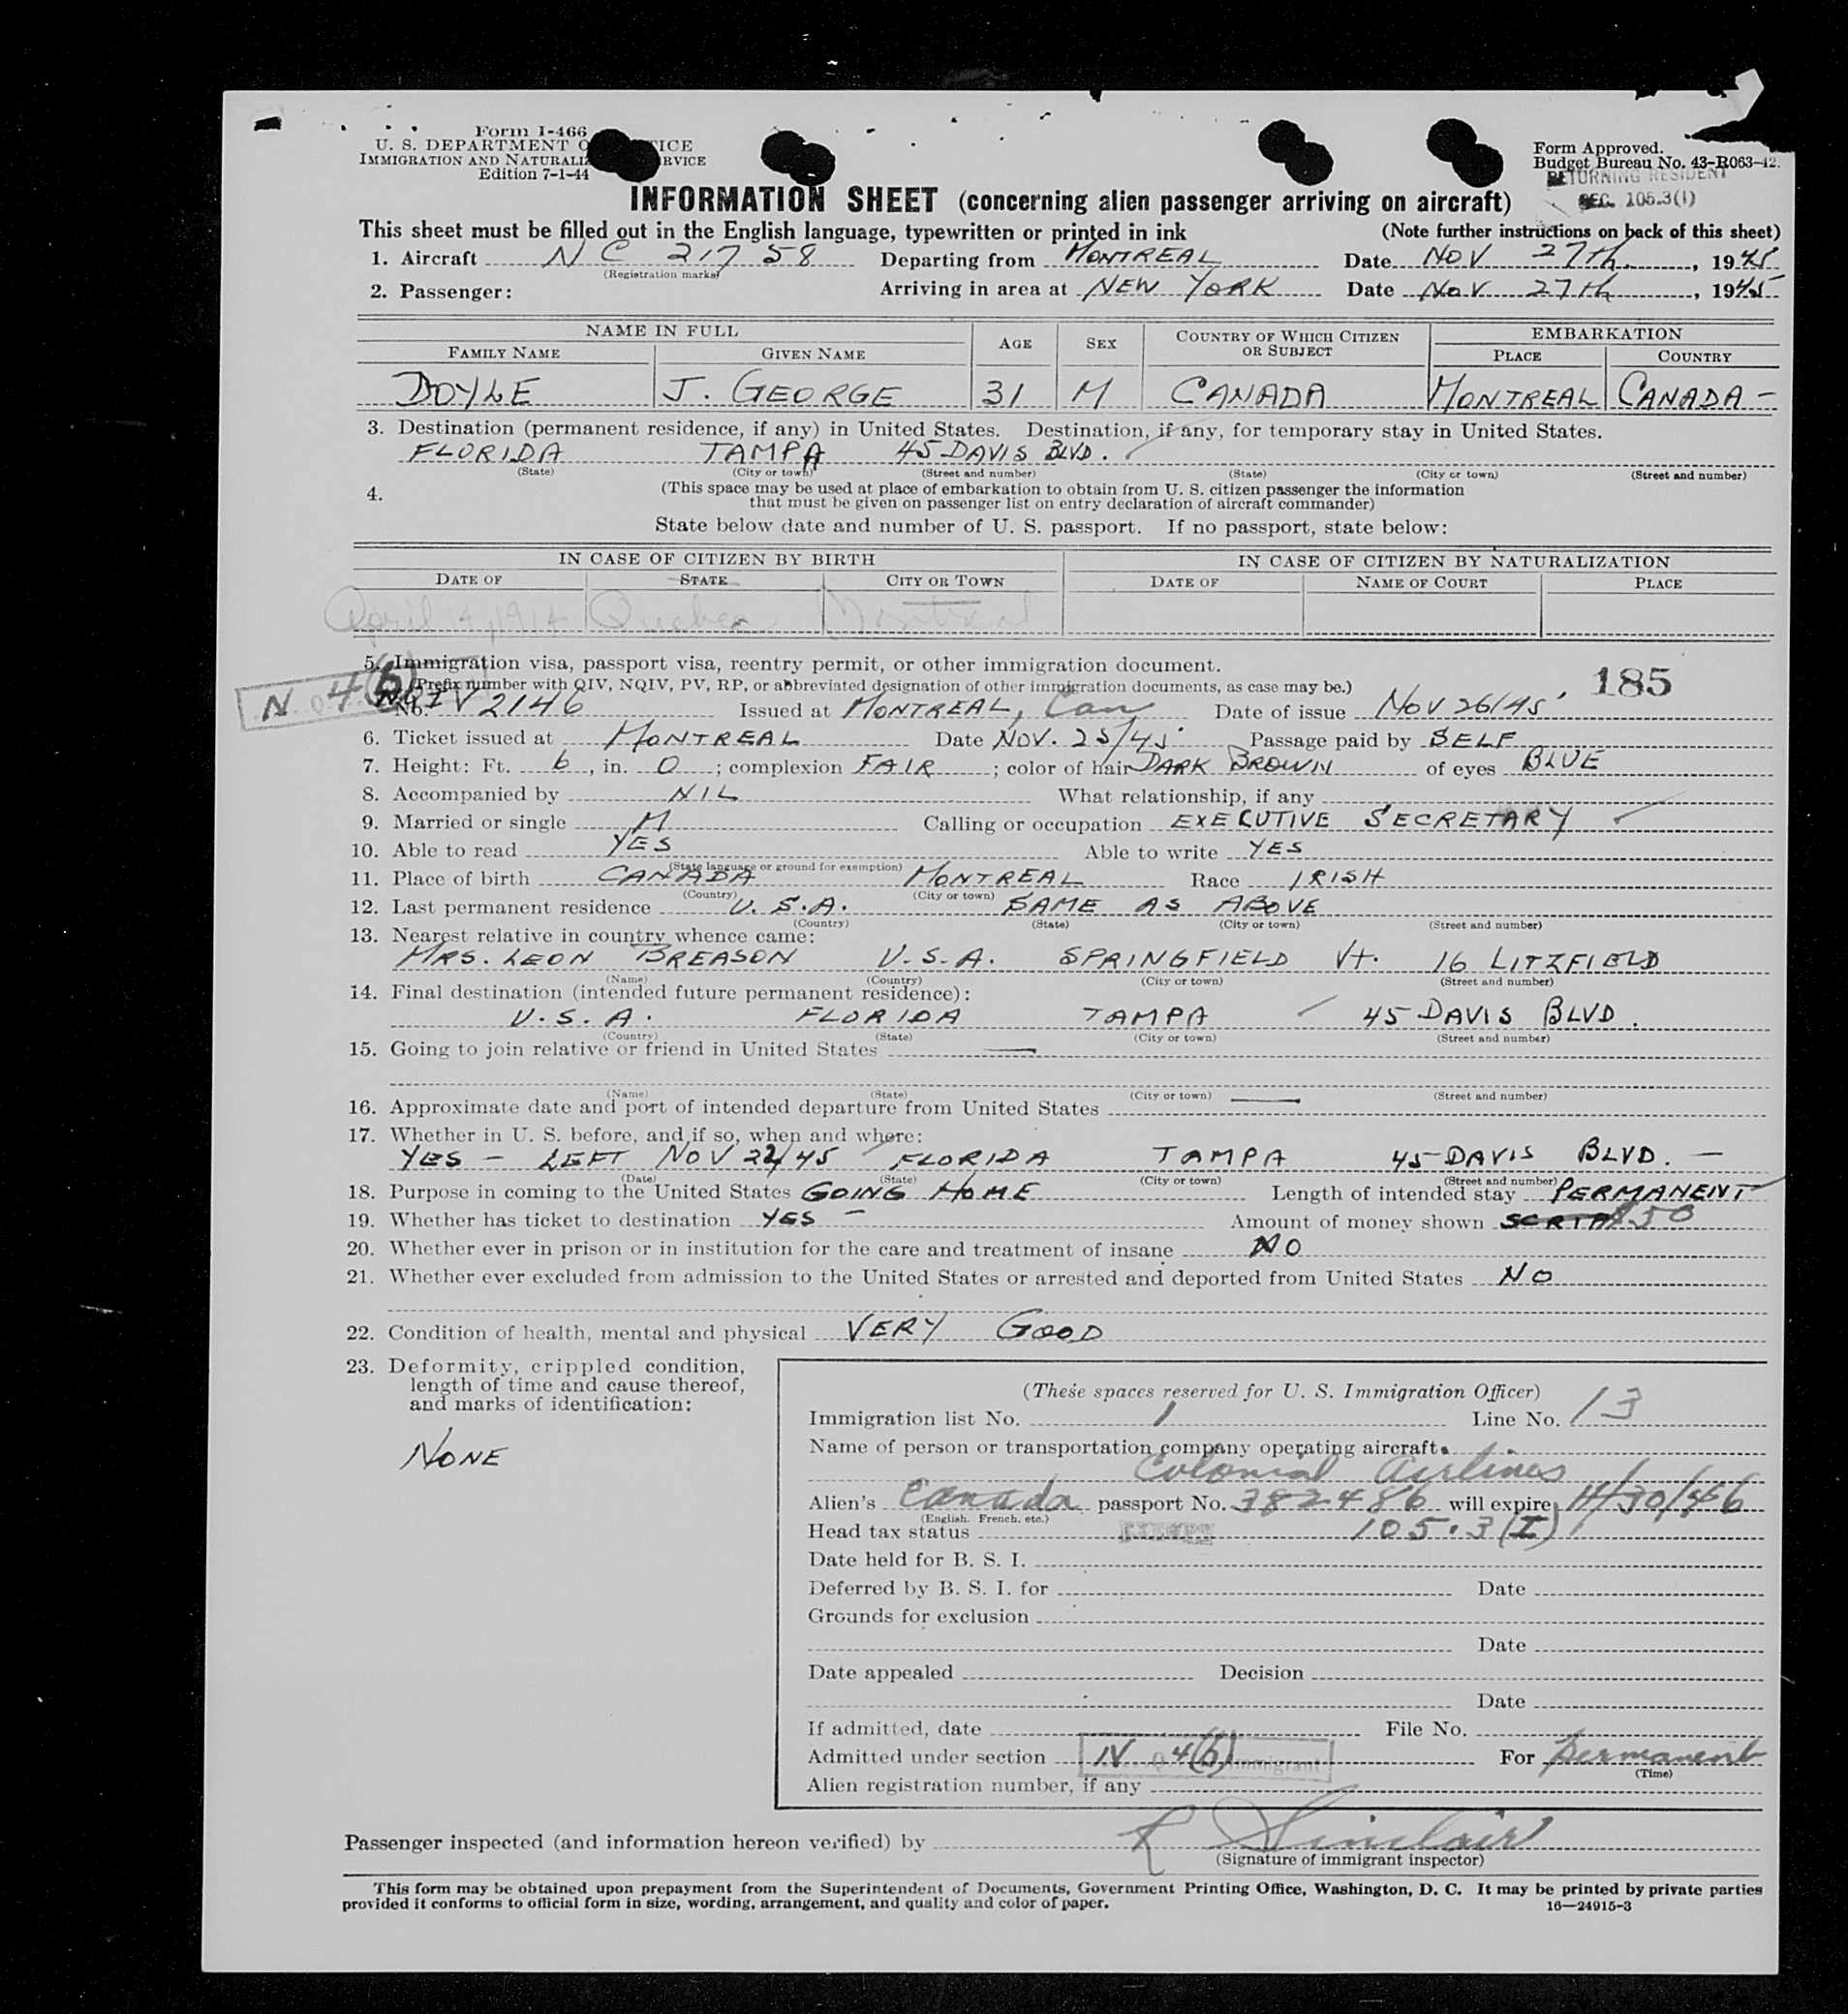 Form I-466
U. S. DEPARTMENT O ICE
IMMIGRATION AND NATURALIZ RVICE
Edition 7-1-44
Form Approved.
Budget Bureau No. 43-R063-42.
RETURNING RESIDENT
SEC. 105.3(1)
INFORMATION SHEET (concerning alien passenger arriving on aircraft)
This sheet must be filled out in the English language, typewritten or printed in ink (Note further instructions on back of this sheet)
1. Aircraft NC 21758 Departing from MONTREAL Date NOV 27th, 1945
(Registration marks)
2. Passenger: Arriving in area at NEW YORK Date NOV 27th, 1945
NAME IN FULL AGE SEX COUNTRY OF WHICH CITIZEN OR SUBJECT EMBARKATION
FAMILY NAME GIVEN NAME PLACE COUNTRY
DOYLE J. GEORGE 31 M CANADA MONTREAL CANADA -
3. Destination (permanent residence, if any) in United States. Destination, if any, for temporary stay in United States.
FLORIDA TAMPA 45 DAVIS BLVD.
(State) (City or town) (Street and number) (State) (City or town) (Street and number)
4. (This space may be used at place of embarkation to obtain from U. S. citizen passenger the information
that must be given on passenger list on entry declaration of aircraft commander)
State below date and number of U. S. passport. If no passport, state below:
IN CASE OF CITIZEN BY BIRTH IN CASE OF CITIZEN BY NATURALIZATION
DATE OF STATE CITY OR TOWN DATE OF NAME OF COURT PLACE
April 4, 1914 Quebec Montreal
5. Immigration visa, passport visa, reentry permit, or other immigration document.
(Prefix number with QIV, NQIV, PV, RP, or abbreviated designation of other immigration documents, as case may be.) 185
N 4(b)
No. NQIV 2146 Issued at MONTREAL, Can Date of issue NOV 26/45
6. Ticket issued at MONTREAL Date NOV. 25/45 Passage paid by SELF
7. Height: Ft. 6, in. 0; complexion FAIR; color of hair DARK BROWN of eyes BLUE
8. Accompanied by NIL What relationship, if any
9. Married or single M Calling or occupation EXECUTIVE SECRETARY
10. Able to read YES Able to write YES
(State language or ground for exemption)
11. Place of birth CANADA MONTREAL Race IRISH
(Country) (City or town)
12. Last permanent residence U.S.A. SAME AS ABOVE
(Country) (State) (City or town) (Street and number)
13. Nearest relative in country whence came:
MRS. LEON BREASON U.S.A. SPRINGFIELD Vt. 16 LITZFIELD
(Name) (Country) (City or town) (Street and number)
14. Final destination (intended future permanent residence):
U.S.A. FLORIDA TAMPA 45 DAVIS BLVD.
(Country) (State) (City or town) (Street and number)
15. Going to join relative or friend in United States —
(Name) (State) (City or town) (Street and number)
16. Approximate date and port of intended departure from United States —
17. Whether in U. S. before, and if so, when and where:
YES - LEFT NOV 22/45 FLORIDA TAMPA 45 DAVIS BLVD. -
(Date) (State) (City or town) (Street and number)
18. Purpose in coming to the United States GOING HOME Length of intended stay PERMANENT
19. Whether has ticket to destination YES - Amount of money shown $50
20. Whether ever in prison or in institution for the care and treatment of insane NO
21. Whether ever excluded from admission to the United States or arrested and deported from United States NO
22. Condition of health, mental and physical VERY GOOD
23. Deformity, crippled condition,
length of time and cause thereof,
and marks of identification:
NONE
(These spaces reserved for U. S. Immigration Officer)
Immigration list No. 1 Line No. 13
Name of person or transportation company operating aircraft
Colonial Airlines
Alien's Canada passport No. 382486 will expire 11/30/46
(English, French, etc.)
Head tax status 105.3(I)
Date held for B. S. I.
Deferred by B. S. I. for Date
Grounds for exclusion
Date
Date appealed Decision
Date
If admitted, date File No.
Admitted under section N 4(b) immigrant For permanent
(Time)
Alien registration number, if any
Passenger inspected (and information hereon verified) by R Sinclair
(Signature of immigrant inspector)
This form may be obtained upon prepayment from the Superintendent of Documents, Government Printing Office, Washington, D. C. It may be printed by private parties
provided it conforms to official form in size, wording, arrangement, and quality and color of paper. 16—24915-3